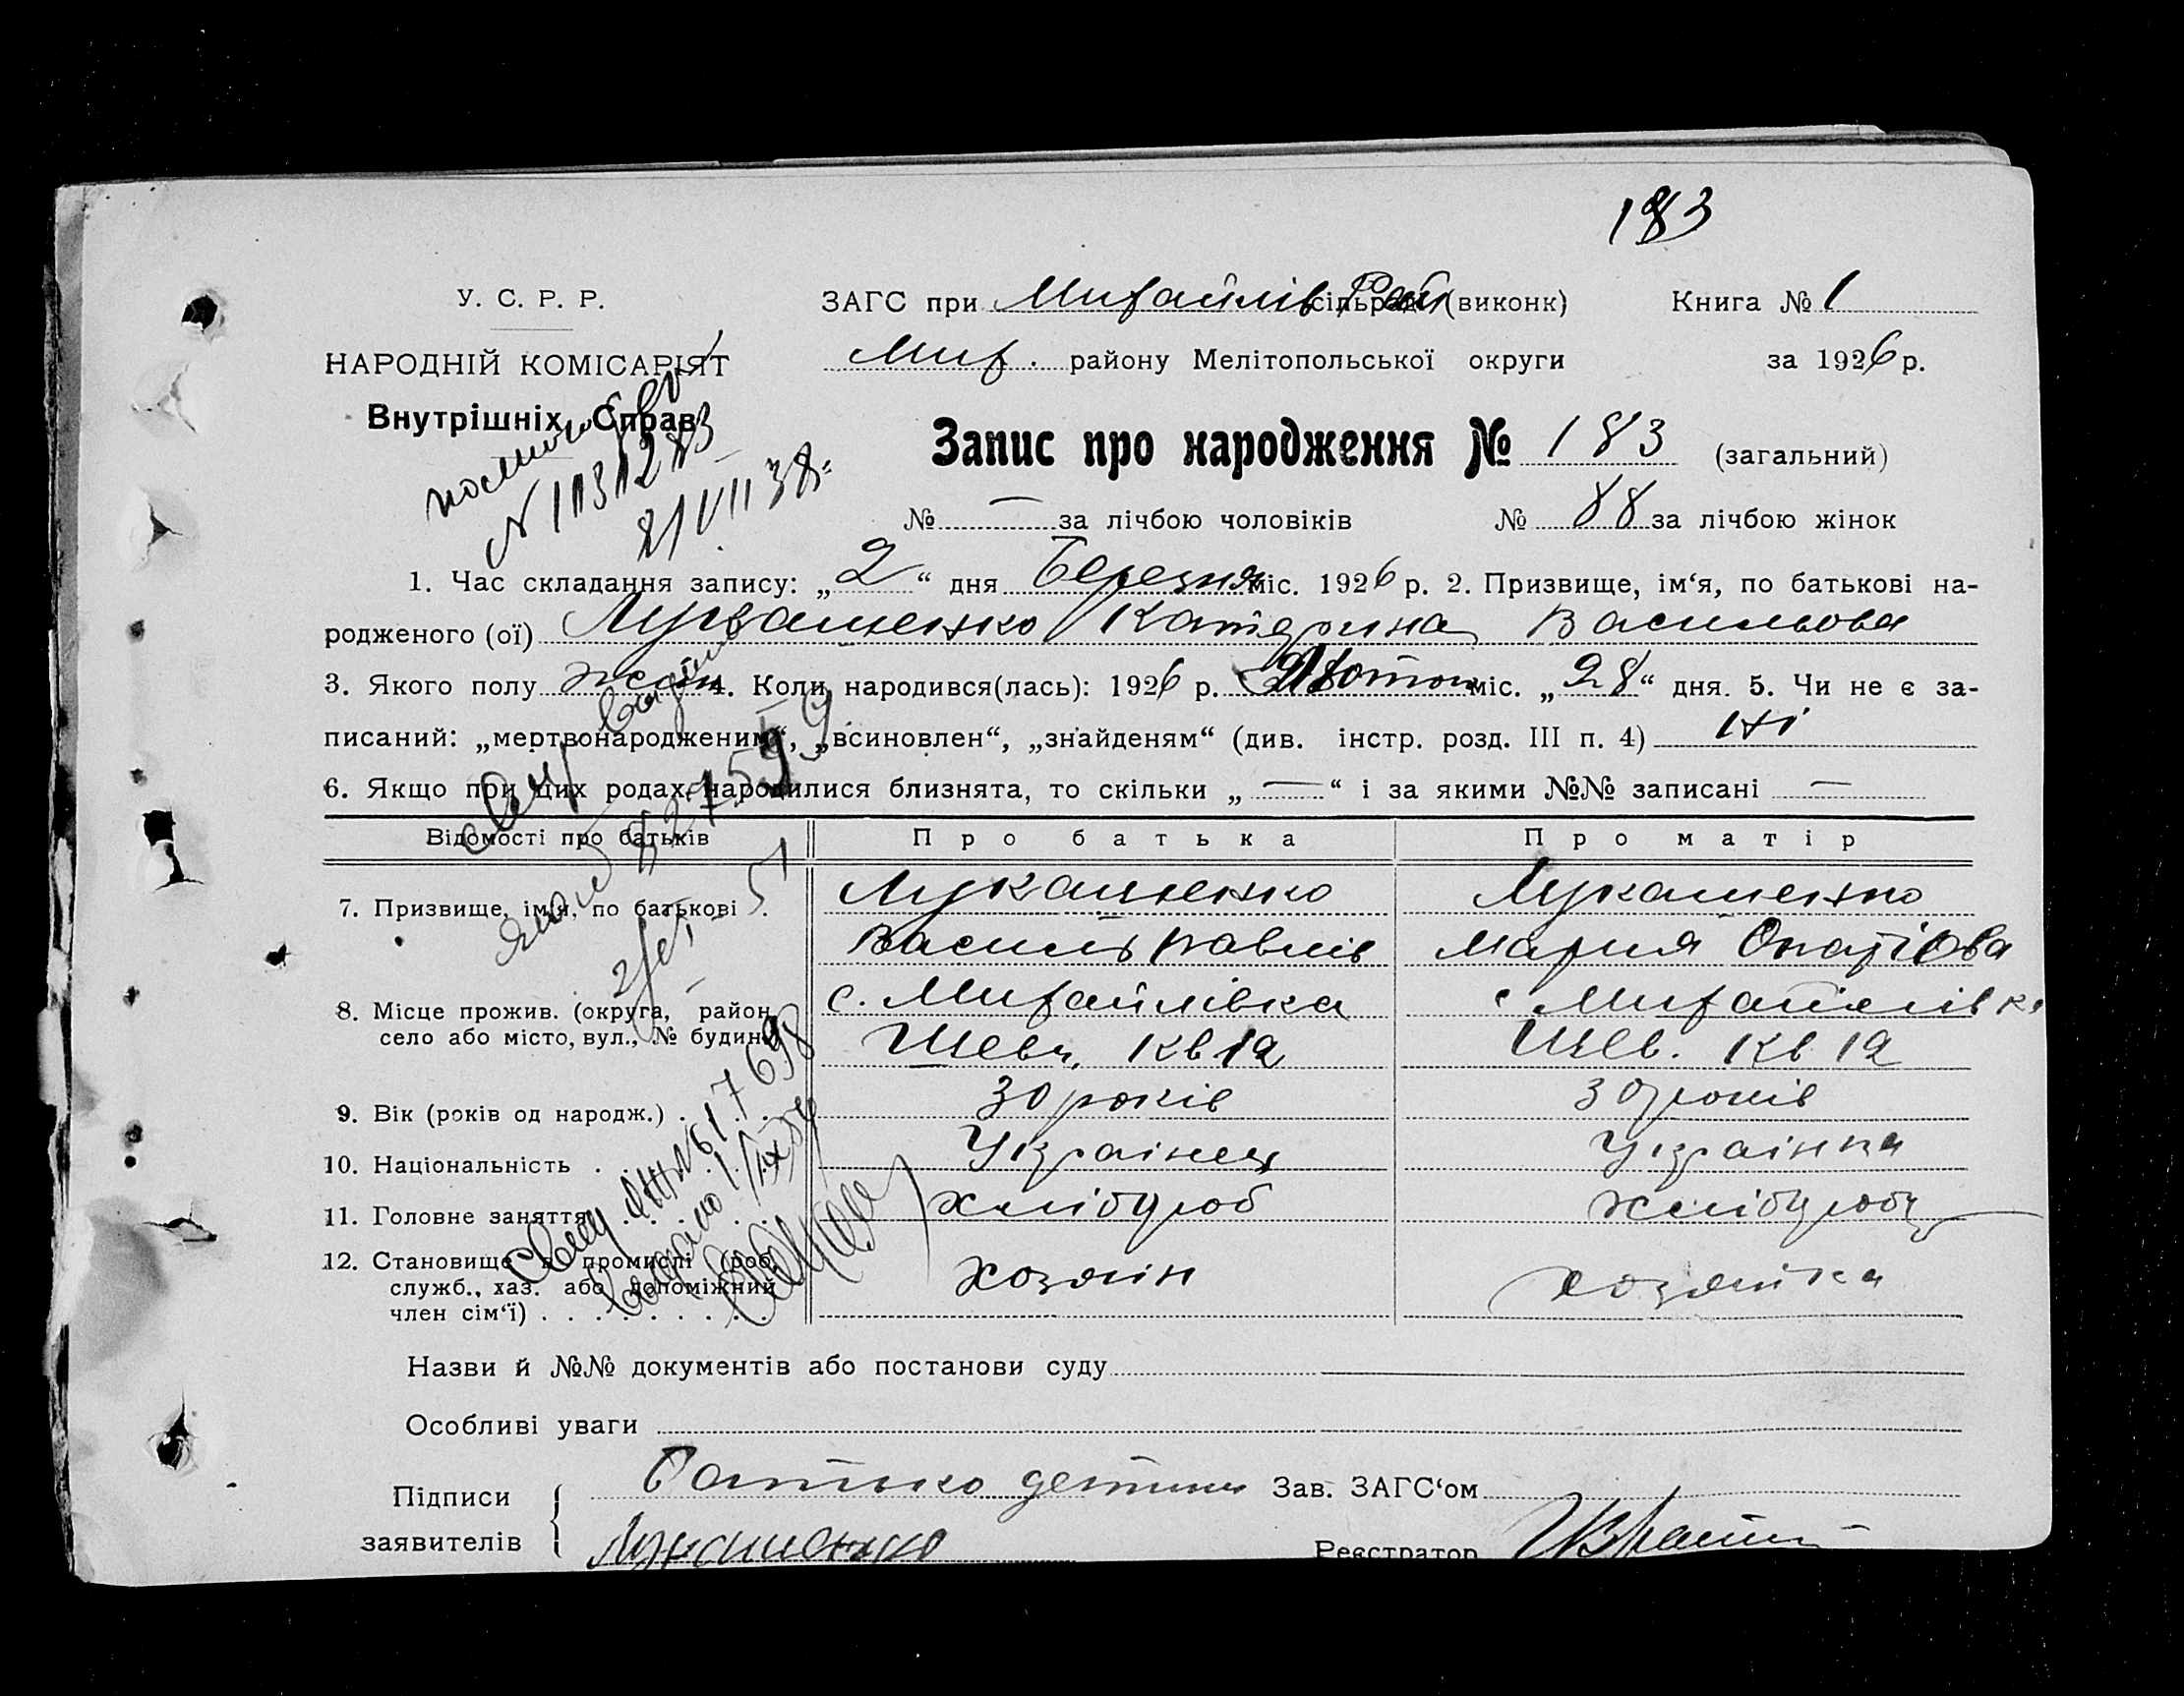 183
У. С. Р. Р.
ЗАГС при Михайлів сільраді (виконк) Книга № 1
НАРОДНІЙ КОМІСАРІЯТ
Мих. району Мелітопольської округи за 1926 р.
Внутрішніх Справ
Запис про народження № 183 (загальний)
№ — за лічбою чоловіків № 88 за лічбою жінок
1. Час складання запису: „2“ дня Березня міс. 1926 р. 2. Призвище, ім‘я, по батькові на-
родженого (ої) Лукашенко Катерина Васильова
3. Якого полу жін 4. Коли народився(лась): 1926 р. Лютого міс. „28“ дня. 5. Чи не є за-
писаний: „мертвонародженим“, „всиновлен“, „знайденям“ (див. інстр. розд. III п. 4) Ні
6. Якщо при цих родах народилися близнята, то скільки „—“ і за якими №№ записані —
Відомості про батьків Про батька Про матір
7. Призвище, ім‘я, по батькові . Лукашенко Лукашенко
Василь Павлів Мария
8. Місце прожив. (округа, район, с. Михайлівка с Михайлівка
село або місто, вул., № будин.) Шевч. кв 12 Шев. кв 12
9. Вік (років од народж.) . . . 30 років 30 років
10. Національність . . . Українец Українка
11. Головне заняття . . . хлібороб хлібороб
12. Становище в промислі (роб.,
служб., хаз. або допоміжний хозяін хозяйка
член сім‘ї) . . . . . . . . .
Назви й №№ документів або постанови суду
Особливі уваги
Підписи Батько детини Зав. ЗАГС‘ом
заявителів Лукашенко Реєстратор